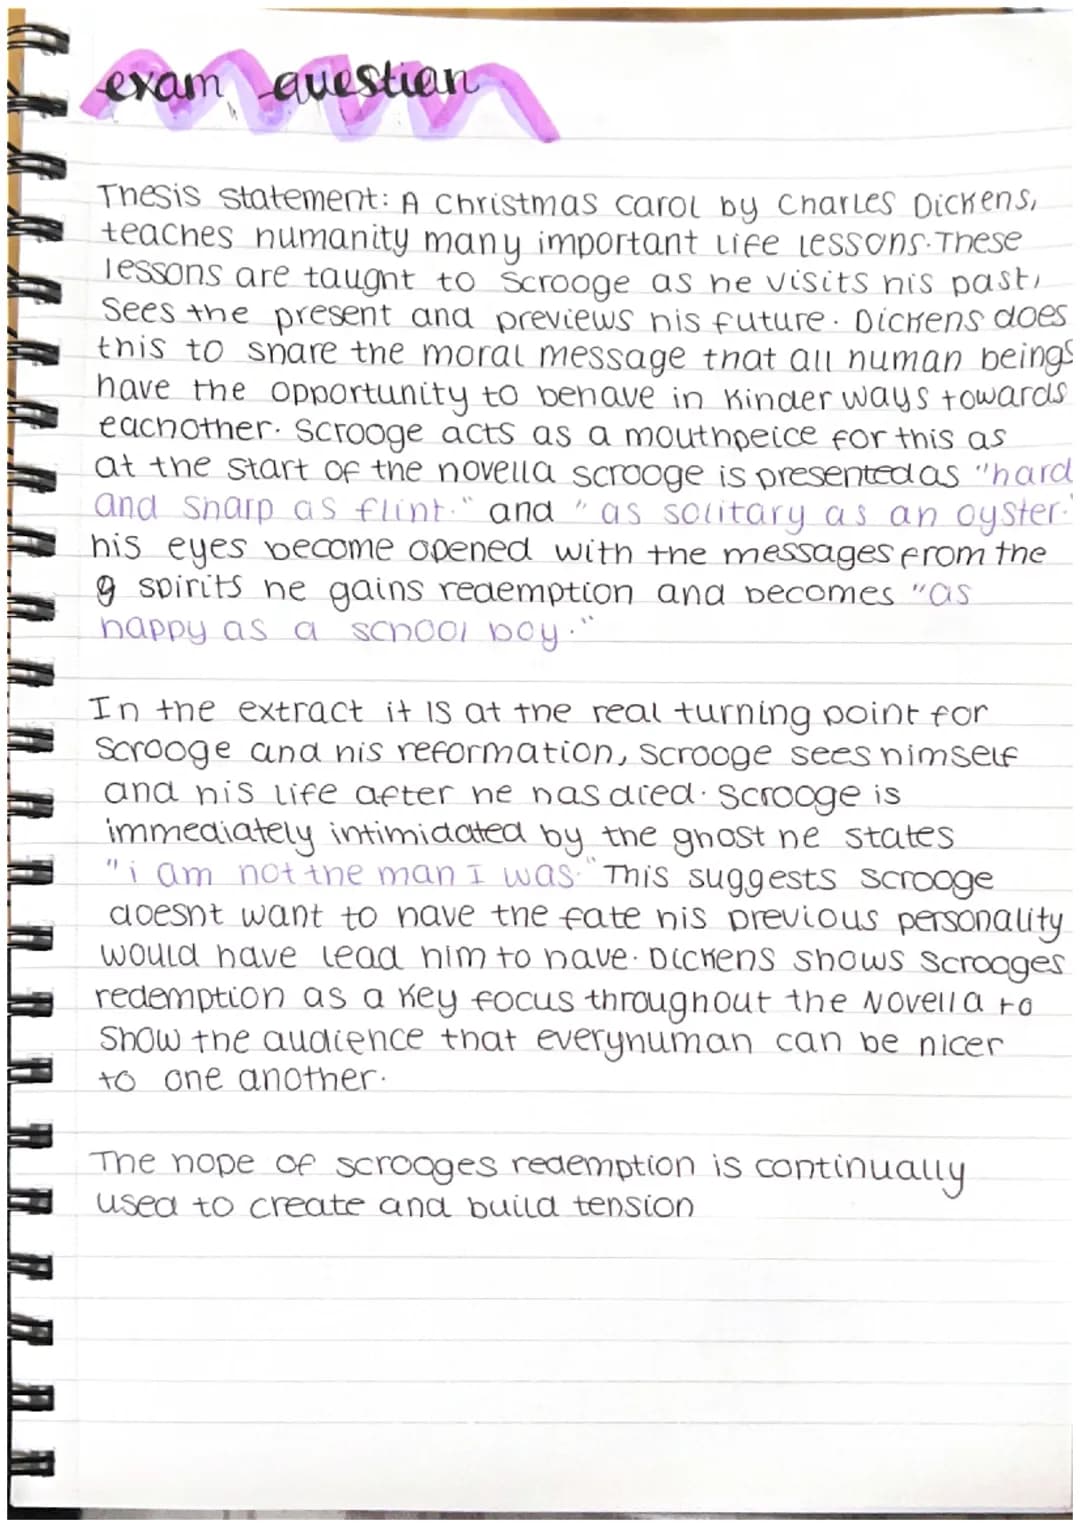 exam question
Thesis statement: A Christmas carol by Charles Dickens,
teaches humanity many important life lessons. These
lessons are taught to Scrooge as he visits his past,
Sees the present and previews his future. Dickens does
this to share the moral message that all human beings
have the opportunity to behave in kinder ways towards
eachother. Scrooge acts as a mouthpeice for this as
at the start of the novella scrooge is presented as "hard
and sharp as flint." and "as solitary as an oyster."
his eyes become opened with the messages from the
g spirits he gains redemption and becomes "as
happy as a school boy."
In the extract it is at the real turning point for
Scrooge and his reformation, Scrooge sees himself
and his life after he has died. Scrooge is
immediately intimidated by the ghost he states
"i am not the man I was." This suggests scrooge
doesnt want to have the fate his previous personality
would have lead him to have. Dickens shows Scrooges
redemption as a key focus throughout the Novella to
Show the audience that everyhuman can be nicer
to one another.
The hope of scrooges redemption is continually
used to create and build tension